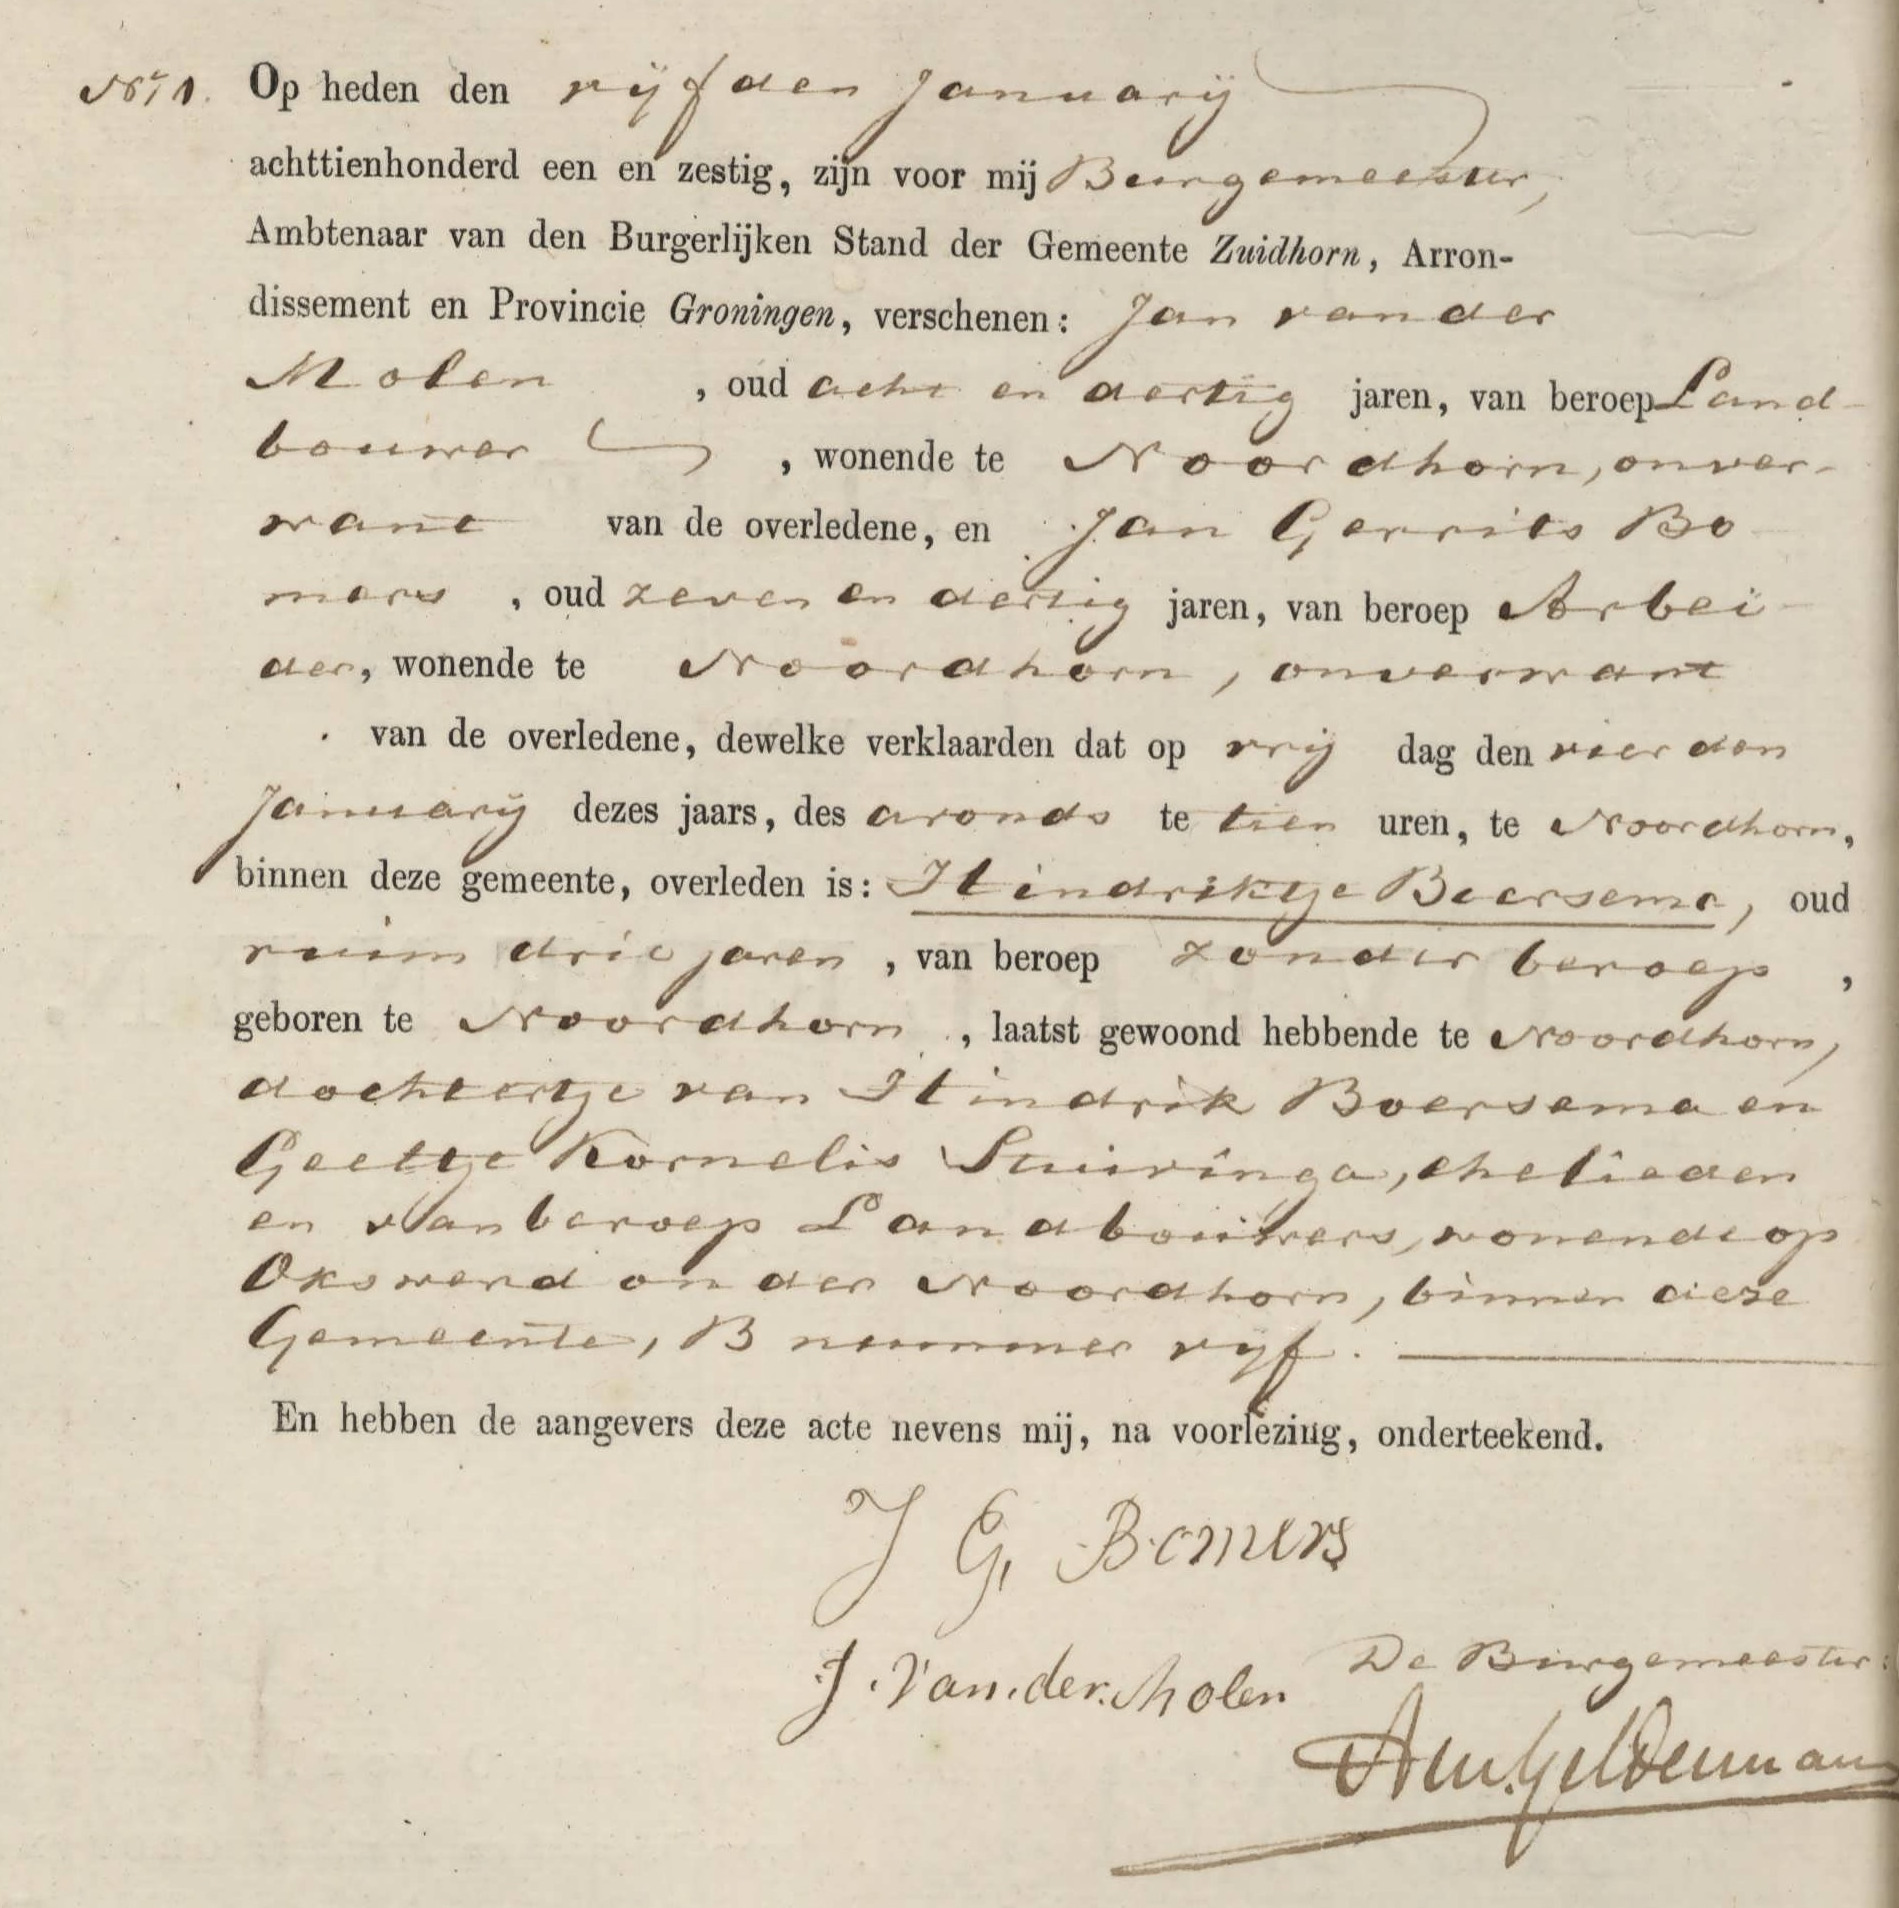 No. 1. Op heden den vijfden Januarij
achttienhonderd een en zestig, zijn voor mij Burgemeester,
Ambtenaar van den Burgerlijken Stand der Gemeente Zuidhorn, Arron-
dissement en Provincie Groningen, verschenen: Jan van der
Molen , oud acht en dertig jaren, van beroep Land-
bouwer , wonende te Noordhorn, onver-
want van de overledene, en Jan Gerrits Bo
mers , oud zeven en dertig jaren, van beroep Arbei
der, wonende te Noordhorn, onverwant
van de overledene, dewelke verklaarden dat op vrij dag den vierden
Januarij dezes jaars, des avonds te tien uren, te Noordhorn,
binnen deze gemeente, overleden is: Hindriktje Boersema, oud
ruim drie jaren , van beroep zonder beroep ,
geboren te Noordhorn , laatst gewoond hebbende te Noordhorn,
dochtertje van Hindrik Boersema en
Geertje Kornelis Suiringa, ehelieden
en van beroep Landbouwers, wonende op
Okswerd onder Noordhorn, binnen deze
Gemeente, B nummer vijf.
En hebben de aangevers deze acte nevens mij, na voorlezing, onderteekend.
J G, Bomers
J. Van der Molen De Burgemeester: